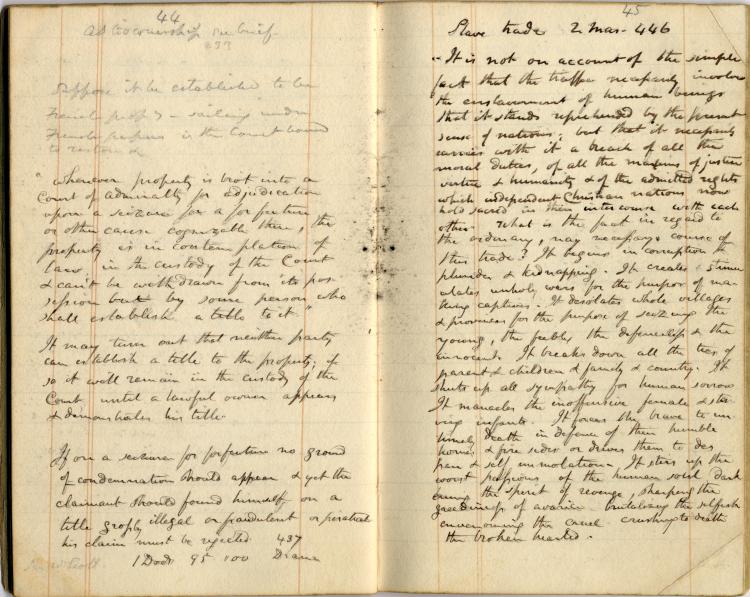 44
As to ownership see brief
233
Suppose it be established to be
French prop'y - sailing under
French papers is the Court bound
to restore &
"Whenever property is brot into a
Court of admiralty for adjudication
upon a seizure for a forfeiture
or other cause cognizable there, the
property is in contemplation of
law, in the custody of the Court
& can't be withdrawn from its pos-
session but by some person who
shall establish a title to it"
It may turn out that neither party
can establish a title to the property; if
so it will remain in the custody of the
Court until a lawful owner appears
& demonstrates his title.
If on a seizure for forfeiture no ground
of condemnation should appear & yet the
claimant should found himself on a
title grossly illegal or fraudulent or piratical
his claim must be rejected 437
1 Dod 95 100 Diana
Scott
45
Slave trade 2 Mas. 446
"It is not on account of the simple
fact that the traffic necessarily involves
the enslavement of human beings
that it stands reprehended by the present
sense of nations; but that it necessarily
carries with it a breach of all the
moral duties, of all the maxims of justice
& humanity & of the admitted rights
which independent Christian nations now
hold sacred in their intercourse with each
other. What is the fact in regard to
the ordinary, nay necessary course of
this trade? It begins in corruption &
plunder & kidnapping. It creates & stimu
lates unholy wars for the purpose of ma-
king captives. It desolates whole villages
& provinces for the purpose of seizing the
young, the feeble, the defenceless & the
innocent. It breaks down all the ties of
parent & children & family & country. It
shuts up all sympathy for human sorrow
It manacles the inoffensive female & star
ving infants. It forces the brave to un
timely death in defence of their humble
homes & firesides or drives them to des
pair & self immolation. It stirs up the
worst passions of the human soul dark
ening the spirit of revenge, sharpening the
greediness of avarice brutalizing the selfish
envenoming the cruel crushing to death
the broken hearted.